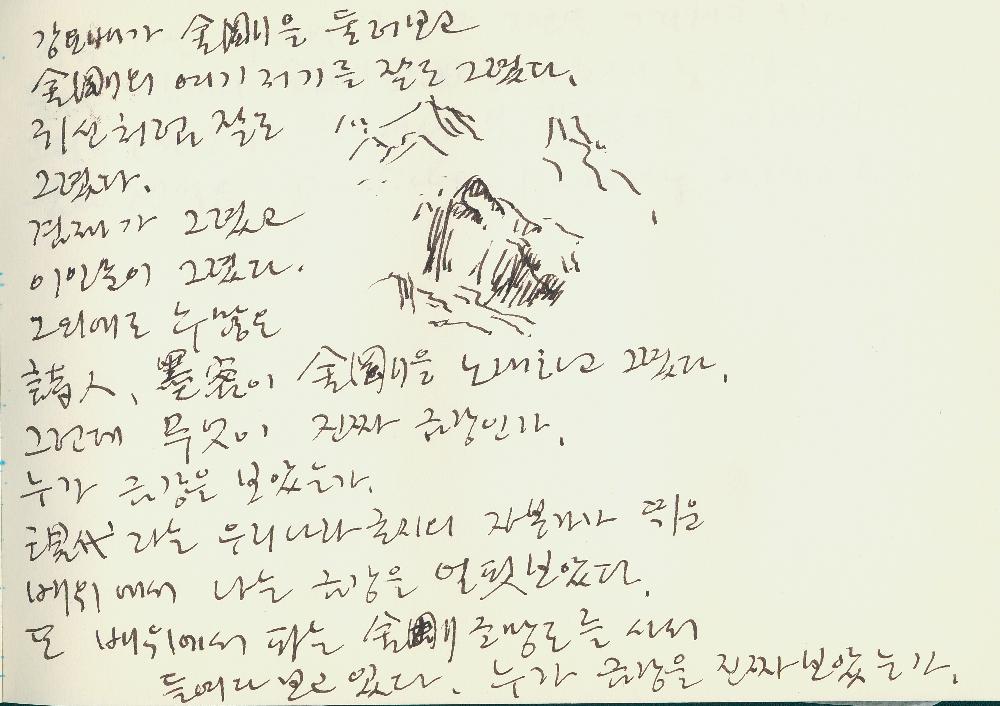 강요배가 金剛을 둘러보고
金剛의 여기저기를 잘도 그렸다.
귀신처럼 잘도
그렸다.
겸재가 그렸고
이인문이 그렸다.
그외에도 수많은
詩人、墨客이 金剛을 노래하고 그렸다.
그런데 무엇이 진짜 금강인가.
누가 금강을 보았는가.
現代라는 우리나라 굴지의 자본가가 띄운
배위에서 나는 금강을 얼핏보았다.
또 배위에서 파는 金剛 조망도를 사서
들여다 보고 있다. 누가 금강을 진짜 보았는가.